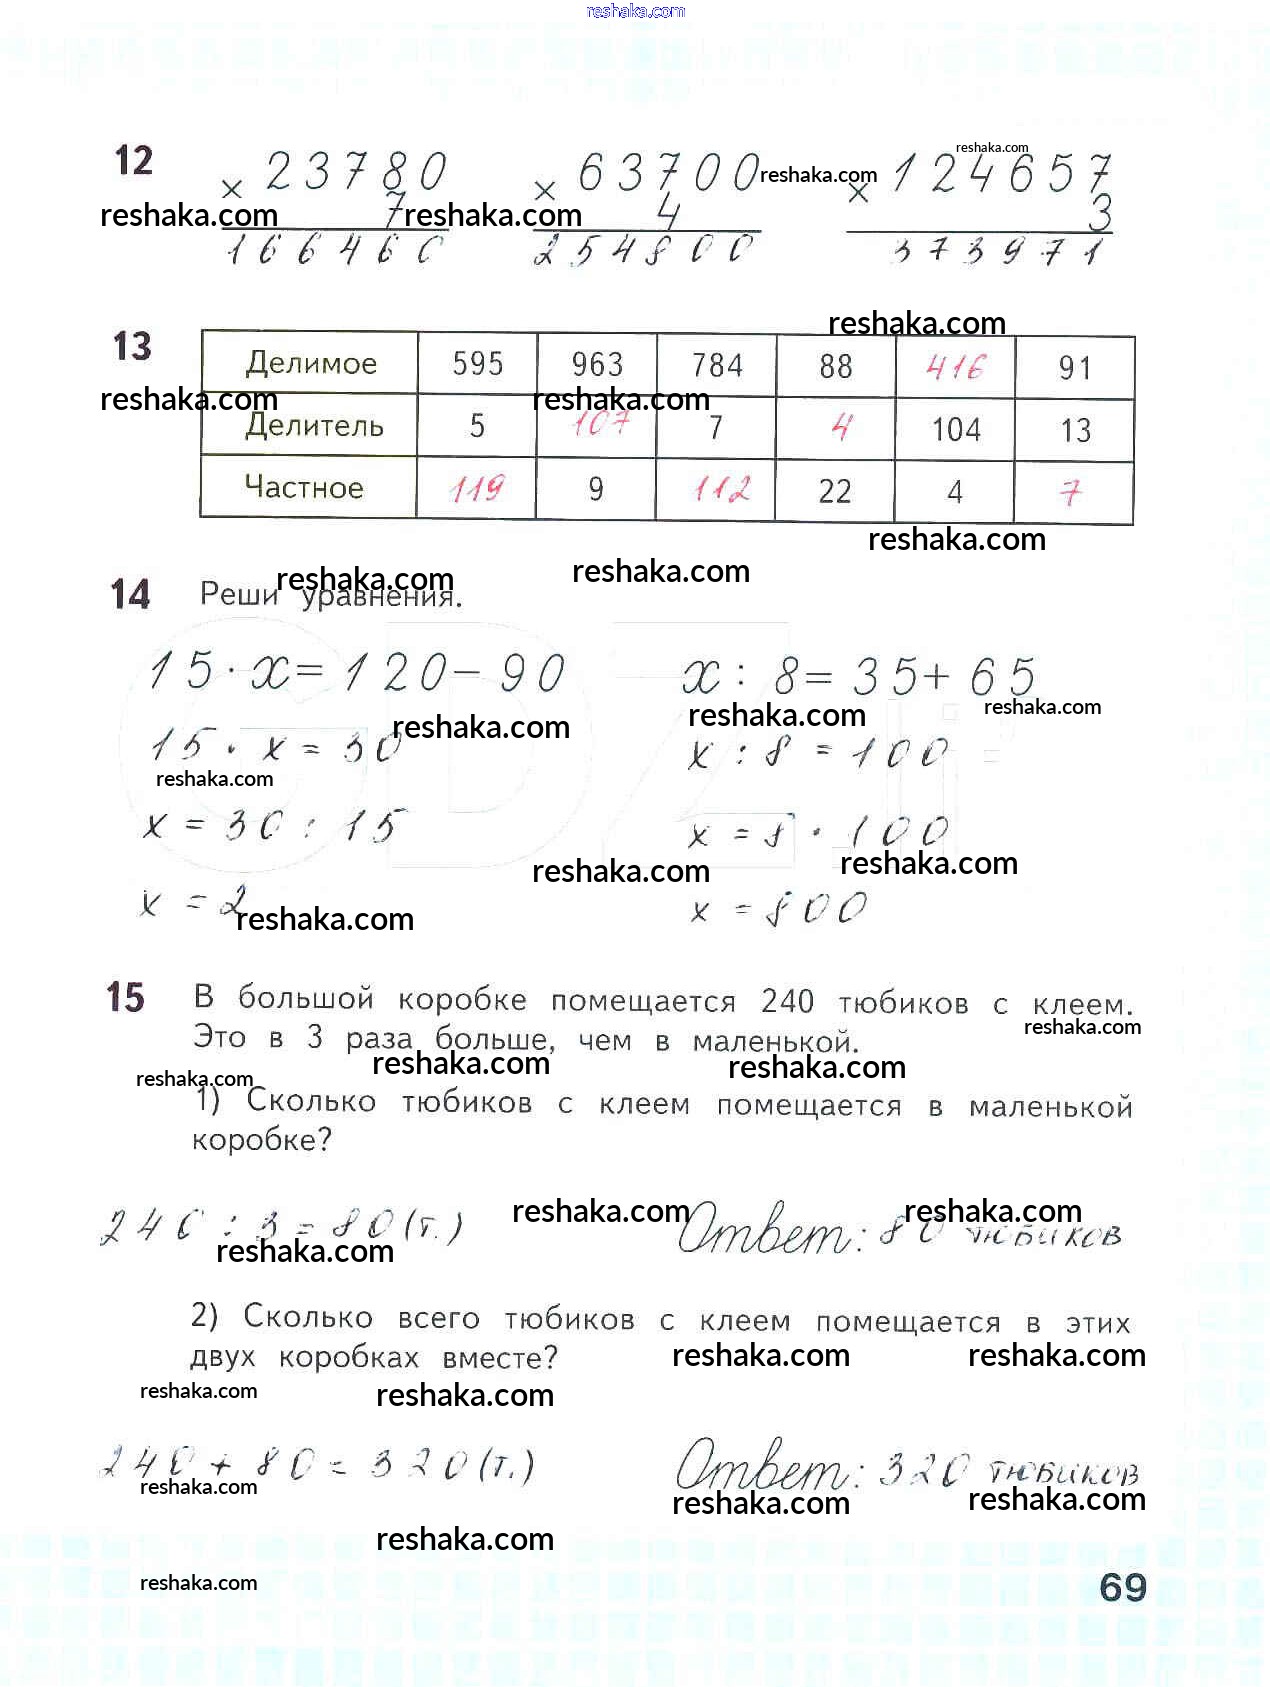 reshaka.com
12 × 23780 × 63700 reshaka.com × 124657 reshaka.com
reshaka.com 7 reshaka.com 4 3
166460 254800 373971
reshaka.com
13 Делимое 595 963 784 88 416 91
reshaka.com reshaka.com
Делитель 5 107 7 4 104 13
Частное 119 9 112 22 4 7
reshaka.com
reshaka.com reshaka.com
14 Реши уравнения.
15 · x = 120 - 90 x : 8 = 35 + 65
reshaka.com reshaka.com reshaka.com
15 · x = 30 x : 8 = 100
reshaka.com
x = 30 : 15 x = 8 · 100
reshaka.com reshaka.com
x = 2 x = 800
reshaka.com
15 В большой коробке помещается 240 тюбиков с клеем.
reshaka.com
Это в 3 раза больше, чем в маленькой.
reshaka.com reshaka.com reshaka.com
1) Сколько тюбиков с клеем помещается в маленькой
коробке?
reshaka.com reshaka.com
240 : 3 = 80 (т.) Ответ: 80 тюбиков
reshaka.com
2) Сколько всего тюбиков с клеем помещается в этих
двух коробках вместе?
reshaka.com reshaka.com
reshaka.com reshaka.com
240 + 80 = 320 (т.) Ответ: 320 тюбиков
reshaka.com reshaka.com reshaka.com
reshaka.com
reshaka.com
69
GDZ.ru